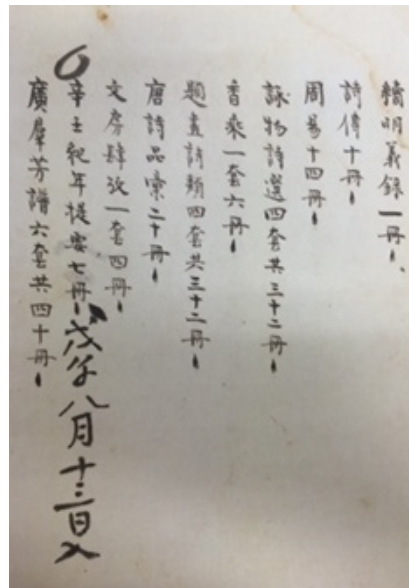 續明義録一冊
詩傳十冊
周易十四冊
詠物詩選四套共三十二冊
香乘一套六冊
題畫詩類四套共三十二冊
唐詩品彙二十冊
文房肆攷一套四冊
辛壬紀年提要七冊 戊午八月十三日入
廣羣芳譜六套共四十冊